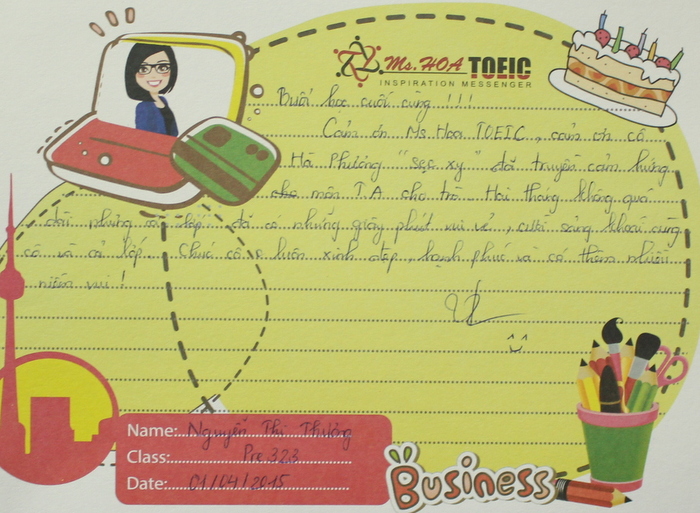 Ms. HOA TOEIC
INSPIRATION MESSENGER
Buổi học cuối cùng !!!
Cảm ơn Ms Hoa TOEIC, cảm ơn cô
Hà Phương "sec xy" đã truyền cảm hứng
cho môn T.A cho trò. Hai tháng không quá
dài nhưng lớp đã có những giây phút vui vẻ, cười sảng khoái cùng
cô và cả lớp. Chúc cô luôn xinh đẹp, hạnh phúc và có thêm nhiều
niềm vui!
Name: Nguyễn Thị Thương
Class: Pre 323
Date: 01/04/2015
Business